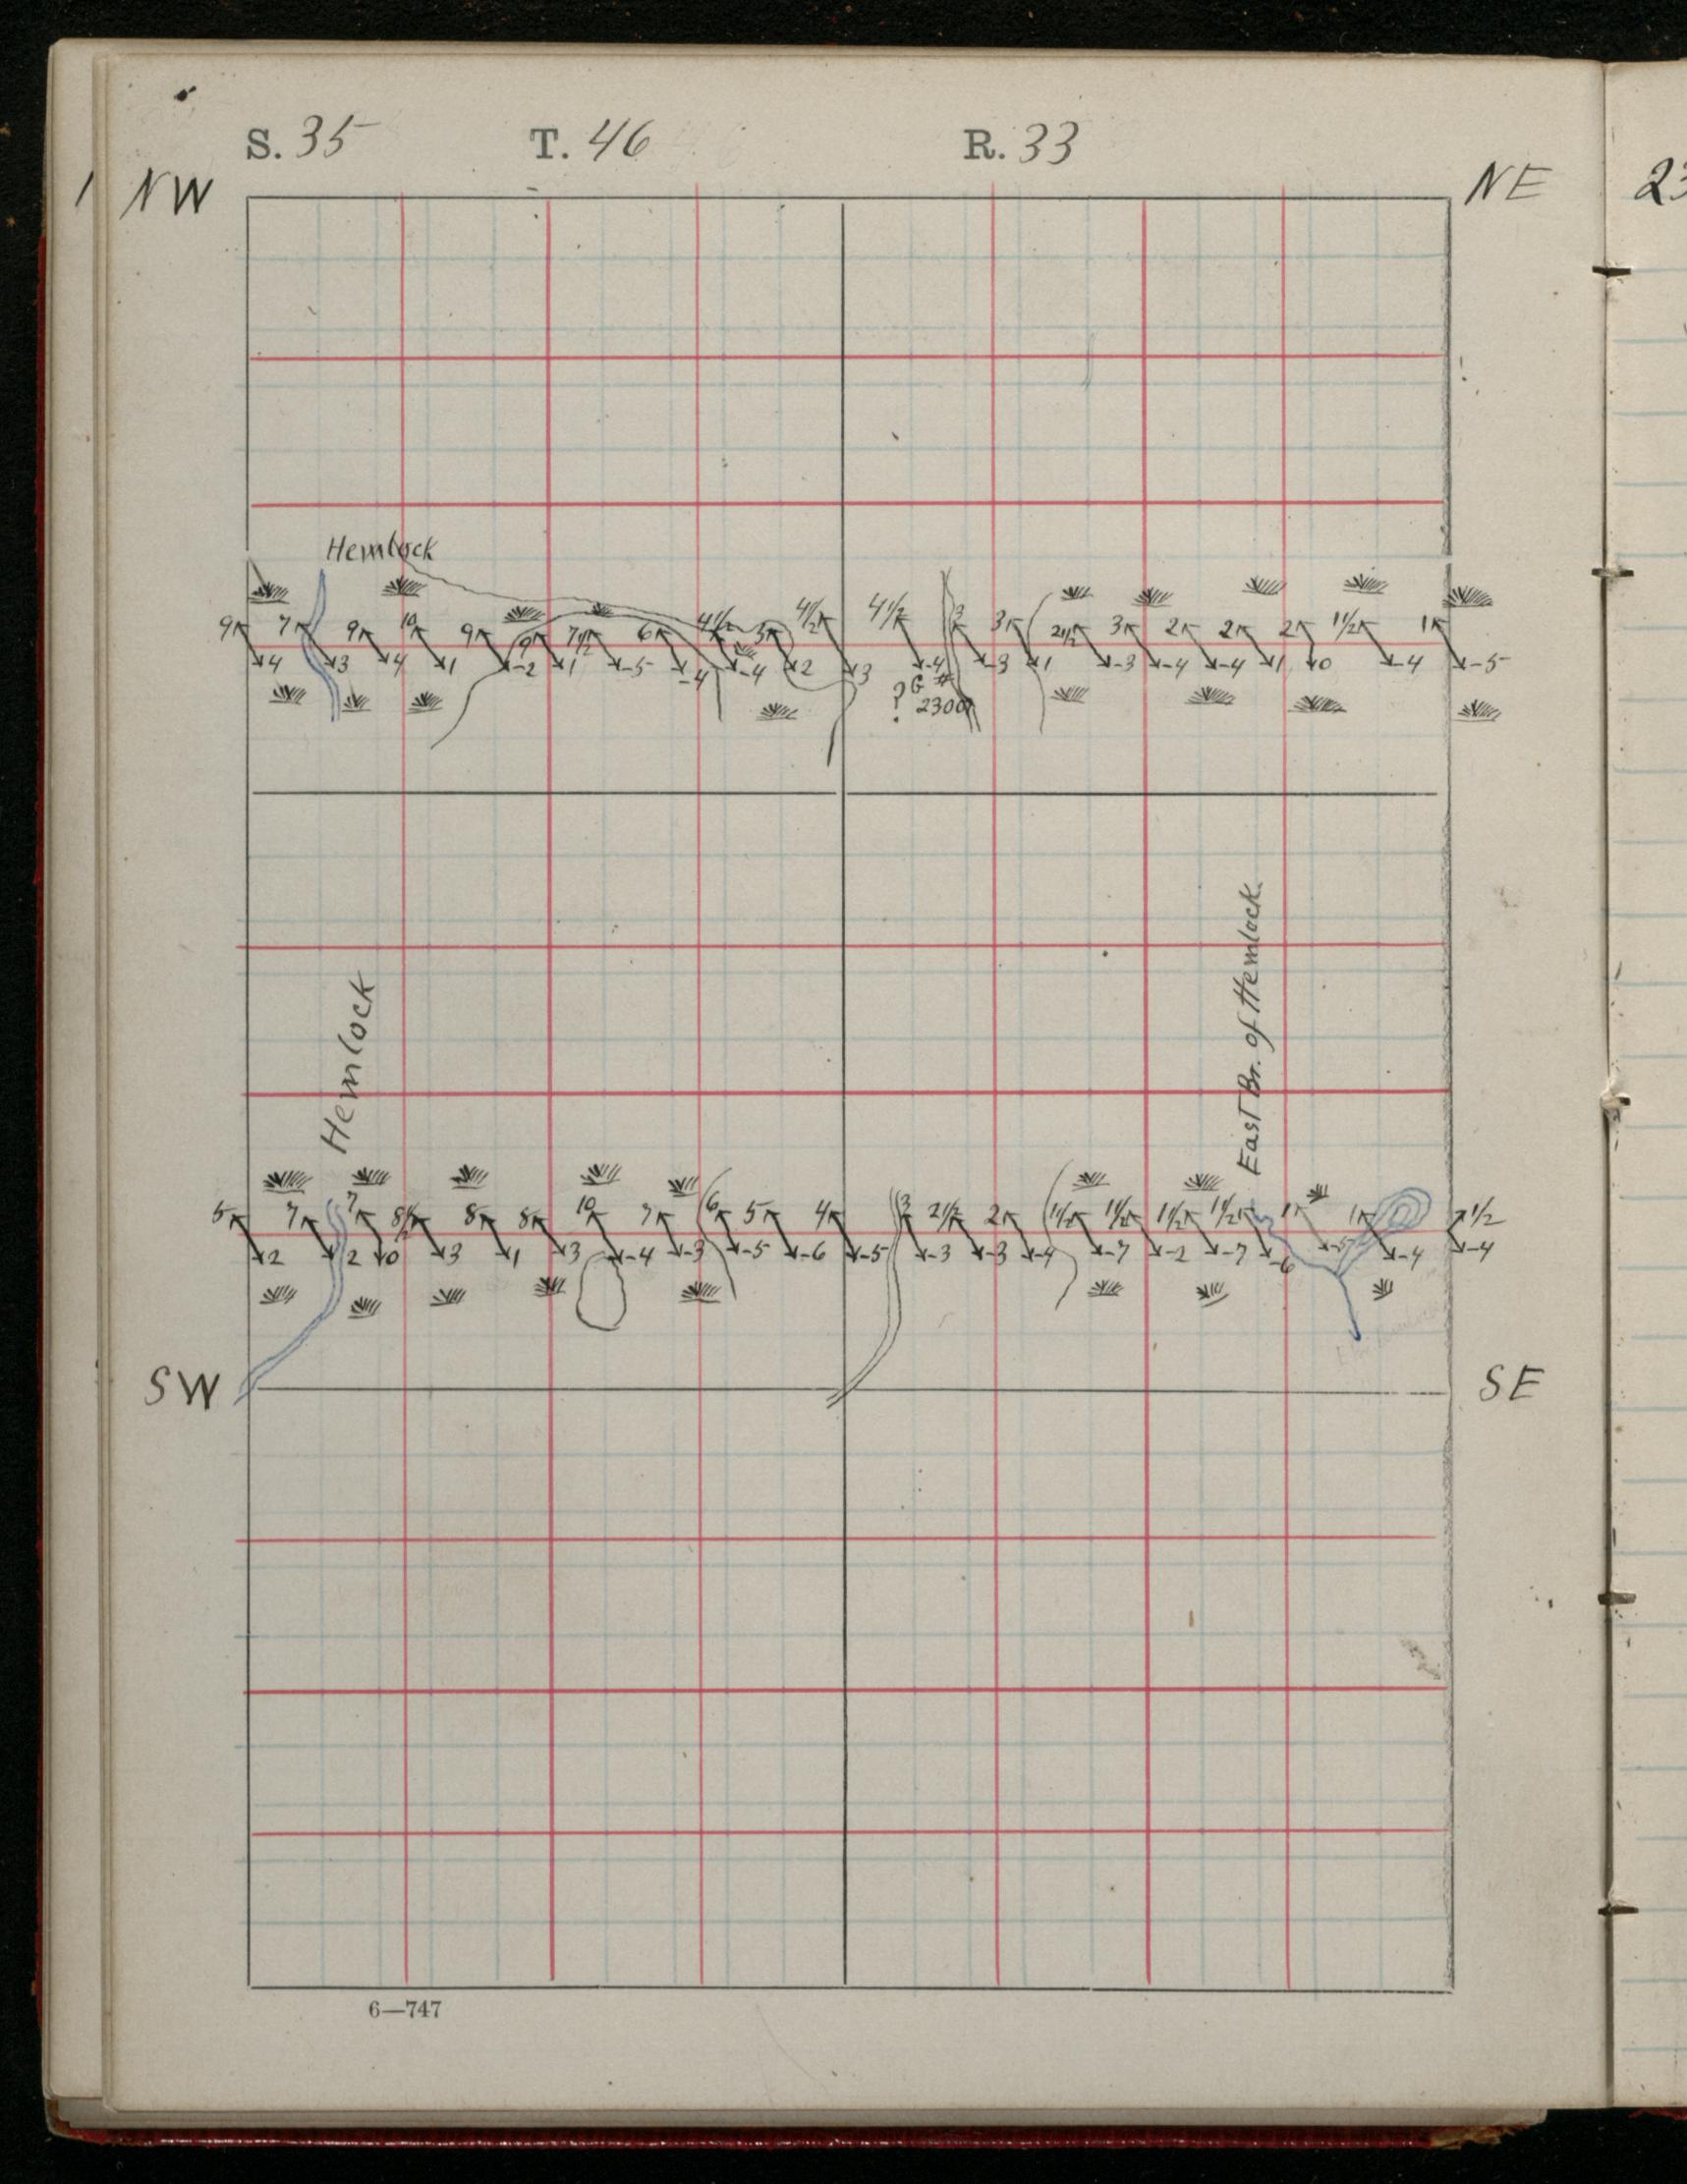 S. 35 T. 46 R. 33
1 NW NE 23
Hemlock
9 7 9 10 9 9 7½ 6 4½ 3 4½ 4½ 3 3 2½ 3 2 2 2 1½ 1
4 3 4 1 -2 1 -5 -4 -4 2 3 -4 -3 1 -3 -4 -4 1 0 -4 -5
? G #
2300
Hemlock
East Br. of Hemlock
5 7 7 8½ 8 8 10 7 6 5 4 3 2½ 2 1½ 1½ 1½ 1½ 1 1 1½
2 2 0 3 1 3 -4 -3 -5 -6 -5 -3 -3 -4 -7 -2 -7 -6 -5 -4 -4
SW SE
6—747